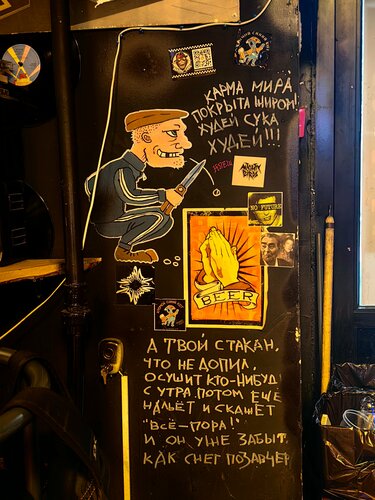 КАРМА МИРА
ПОКРЫТА ЖИРОМ!
ХУДЕЙ СУКА
ХУДЕЙ!!!
NO FUTURE
BEER
А ТВОЙ СТАКАН,
ЧТО НЕ ДОПИЛ,
ОСУШИТ КТО-НИБУДЬ
С УТРА, ПОТОМ ЕЩЁ
НАЛЬЁТ И СКАЖЕТ
"ВСЁ-ПОРА!"
И ОН УЖЕ ЗАБЫТ,
КАК СНЕГ ПОЗАВЧЕР